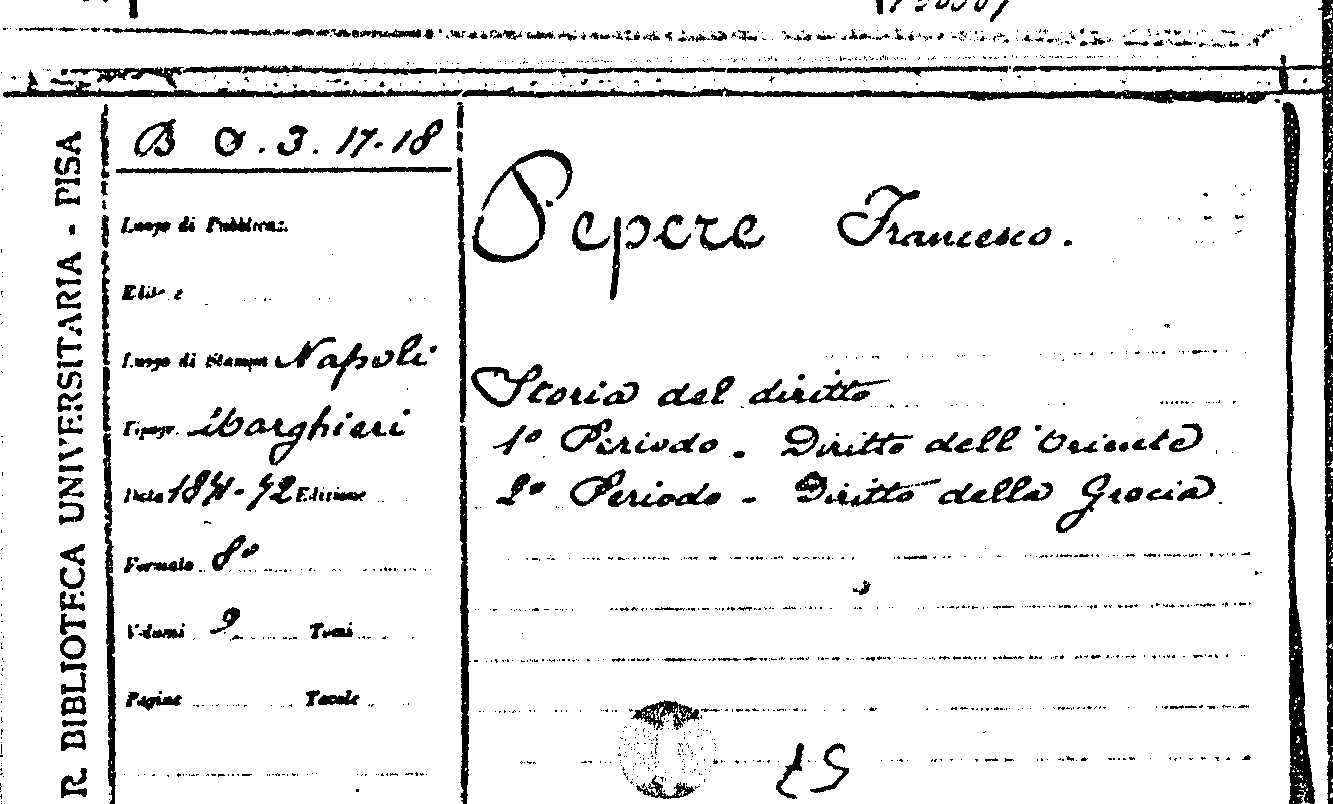 R. BIBLIOTECA UNIVERSITARIA - PISA
B O. 3. 17-18
Luogo di Pubblicaz.
Editore
Luogo di Stampa Napoli
Tipogr. Marghieri
Data 1871-72 Edizione
Formato 8°
Volumi 2 Tomi
Pagine Tavole
Pepere Francesco.
Storia del diritto
1° Periodo. Diritto dell'Oriente
2° Periodo - Diritto della Grecia